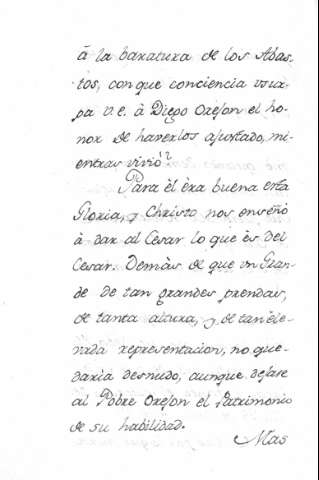 à la baratura de los Abas-
tos, con que conciencia usur-
pa v.e. à Diego Orejon el ho-
nor de haverlos ajustado, mi-
entras vivio?
Para èl èra buena esta
Gloria, y Christo nos enseñò
à dar al Cesar lo que ès del
Cesar. Demàs de que un Gran-
de de tan grandes prendas,
de tanta altura, y de tan ele-
vada representacion, no que-
daria desnudo, aunque dejase
al Pobre Orejon el Patrimonio
de su habilidad.
Mas